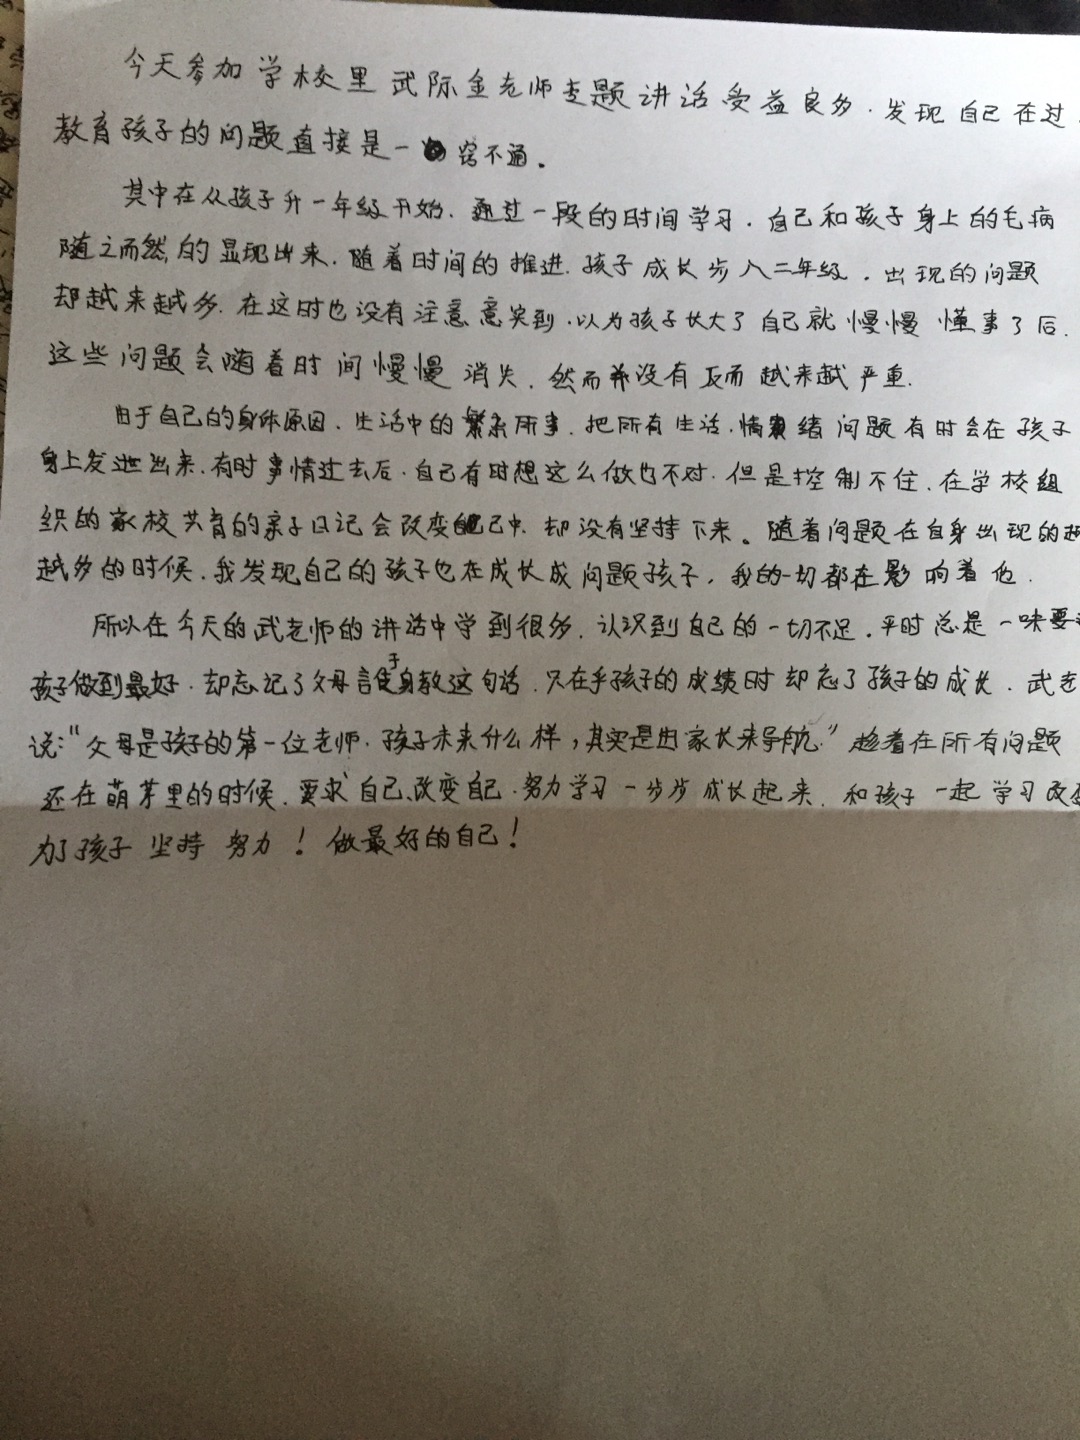 今天参加学校里武际金老师专题讲话受益良多.发现自己在过
教育孩子的问题直接是一窍不通。
其中在从孩子升一年级开始.通过一段的时间学习.自己和孩子身上的毛病
随之而然的显现出来.随着时间的推进.孩子成长步入二年级.出现的问题
却越来越多.在这时也没有注意意识到.以为孩子长大了自己就慢慢懂事了后.
这些问题会随着时间慢慢消失.然而并没有反而越来越严重.
由于自己的身体原因.生活中的繁琐所事.把所有生活.情绪问题有时会在孩子
身上发泄出来.有时事情过去后.自己有时想这么做也不对.但是控制不住.在学校组
织的家校共育的亲子日记会改变自己中.却没有坚持下来。随着问题在自身出现的越
越多的时候.我发现自己的孩子也在成长成问题孩子.我的一切都在影响着他.
所以在今天的武老师的讲话中学到很多.认识到自己的一切不足.平时总是一味要
孩子做到最好.却忘记了父母言于身教这句话.只在乎孩子的成绩时却忘了孩子的成长.武老
说:“父母是孩子的第一位老师.孩子未来什么样,其实是由家长来导航.”趁着在所有问题
还在萌芽里的时候.要求自己.改变自己.努力学习一步步成长起来.和孩子一起学习改变
为了孩子坚持努力!做最好的自己!